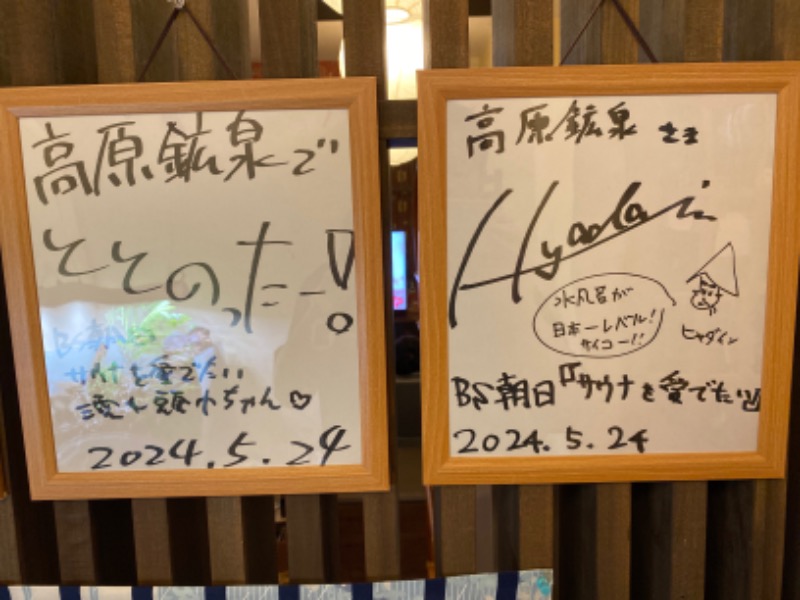 高原鉱泉で
ととのったー!
BS朝日
サウナを愛でたい
濡れ頭巾ちゃん♡
2024.5.24
高原鉱泉さま
Hyadain
水風呂が
日本一レベル!
サイコー!!
ヒャダイン
BS朝日『サウナを愛でたい』
2024.5.24